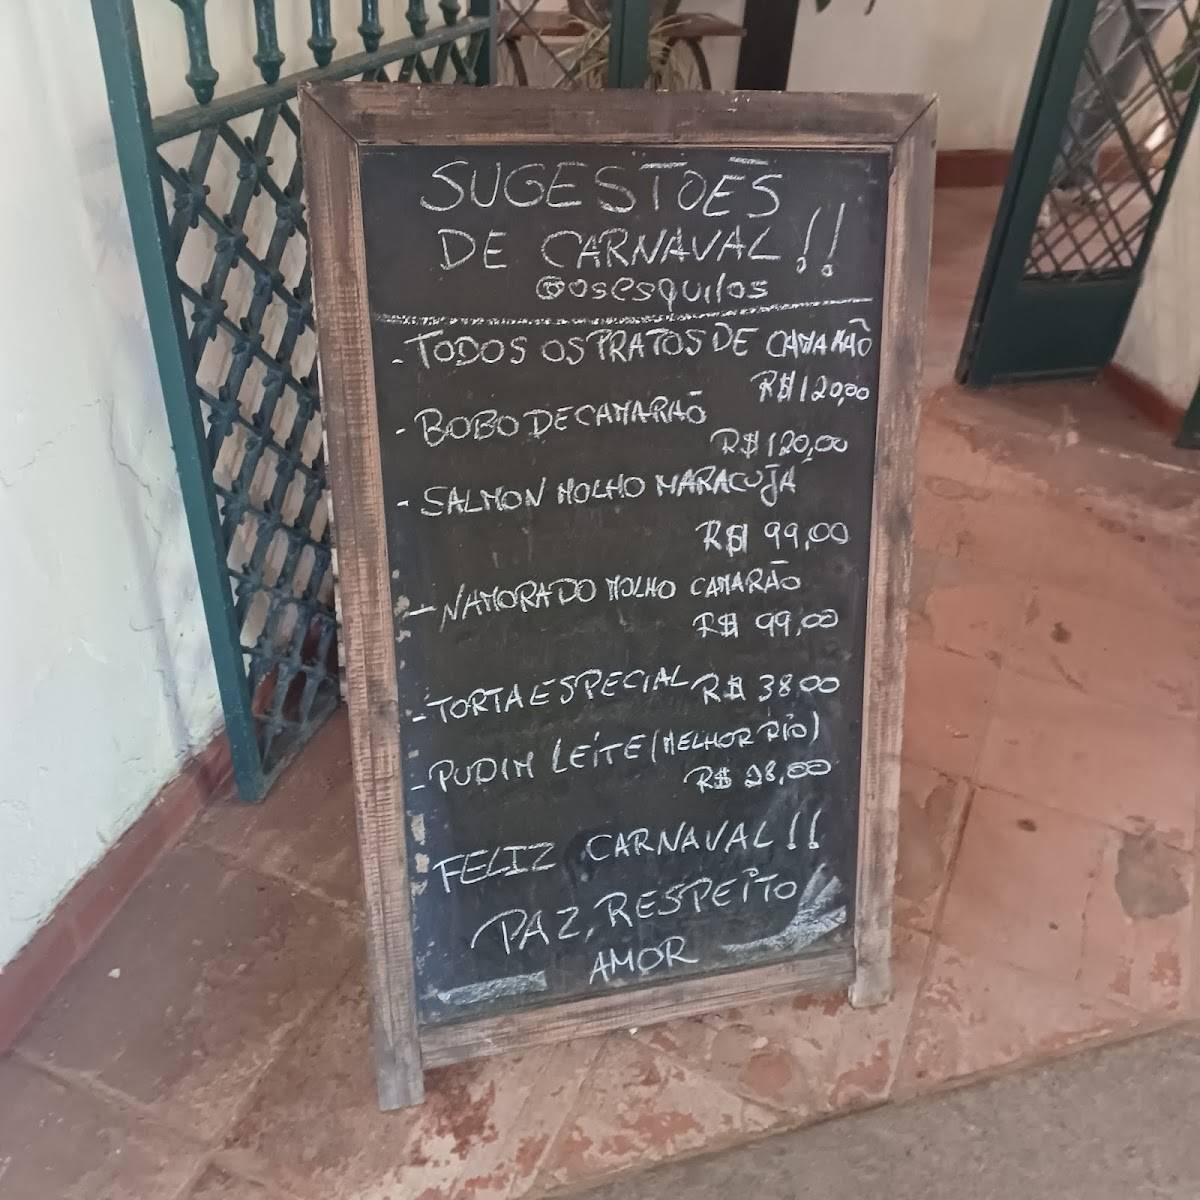 SUGESTÕES
DE CARNAVAL!!
@osesquilos
- TODOS OS PRATOS DE CAMARÃO
R$120,00
- BOBO DE CAMARÃO
R$120,00
- SALMON MOLHO MARACUJÁ
R$ 99,00
- NAMORADO MOLHO CAMARÃO
R$ 99,00
- TORTA ESPECIAL R$ 38,00
- PUDIM LEITE (MELHOR RIO)
R$ 28,00
FELIZ CARNAVAL!!
PAZ, RESPEITO
AMOR